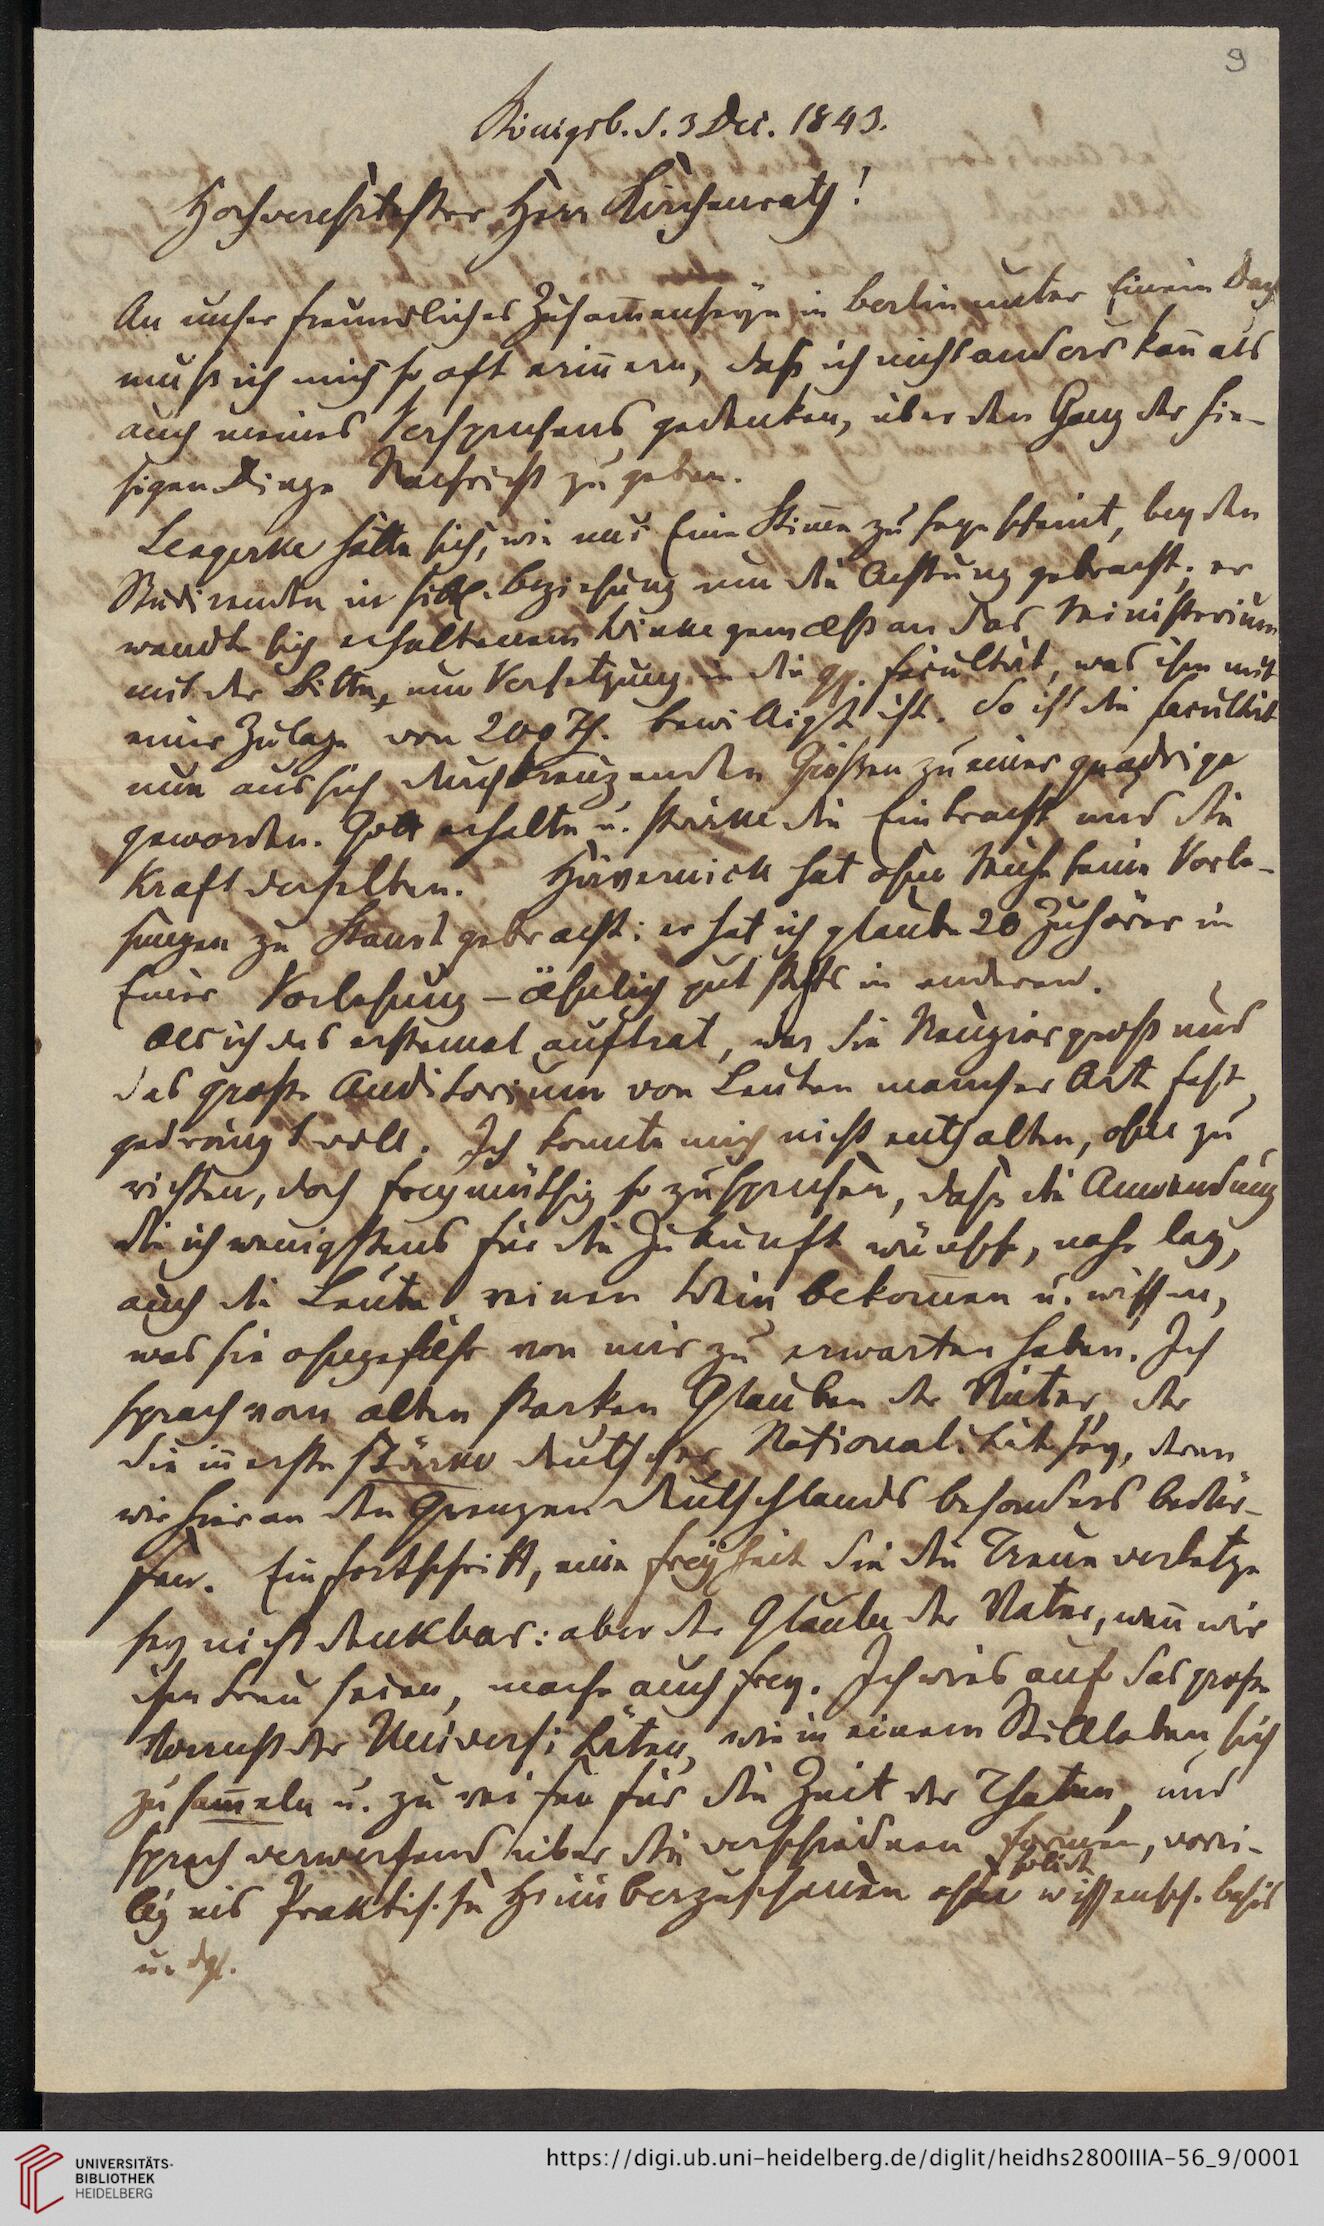 9
Königsb. d. 3 Dec. 1843.
Hochverehrtester Herr Kirchenrath!
An unser freundliches Zusam̄enseyn in Berlin unter Einem Dach
muß ich mich so oft erin̄ern, daß ich nicht anders kan̄ als
auch meines Versprechens gedenken, über den Gang der hie-
sigen Dinge Nachricht zu geben.
Lengerke hatte sich, wie nur Eine Stim̄e zu seyn scheint, bey den
Studirenden in sittl. Beziehung um die Achtung gebracht; er
wandte sich erhaltenem Winke gemæß an das Ministerium
mit der Bitte, um Versetzung in die Facultät, was ihm mit
einer Zulage von 200 Th. bewilligt ist. So ist die Facultät
nun aus sich durchkreuzenden Größen zu einer quadriga
geworden. Gott erhalte u. stärke die Eintracht und die
Kraft derselben. Hävernick hat ohne Mühe seine Vorle-
sungen zu Stande gebracht: er hat ich glaube 20 Zuhörer in
Einer Vorlesung – æhnlich gut stehts in anderen.
Als ich das erstemal auftrat, war die Neugier groß und
das große Auditorium von Leuten mancher Art fast
gedrängt voll. Ich konnte mich nicht enthalten, ohne zu
richten, doch freymüthig so zu sprechen, daß die Anwendung
die ich wenigstens für die Zukunft wünsche, nahe lag,
auch die Leute reinen Wein bekom̄en u. wissen,
was sie ohngefæhr von mir zu erwarten haben. Ich
sprach vom alten starken Glauben der Väter, der
die in̄erste Stärke deutscher Nationalität sey, deren
wir hier an den Grenzen Deutschlands besonders bedür-
fen. Ein Fortschritt, eine Freyheit die die Treue verletze
sey nicht denkbar: aber der Glaube der Väter, wen̄ wir
ihm treu seien, mache auch frey. Ich wies auf das große
Vorrecht der Universitäten, wie in einem Stillleben sich
zu sam̄eln u. zu reifen für die Zeit der Thaten, und
sprach verwerfend über die verschiedenen Formen, vorei-
lig ins Praktische hinüberzuschauen ohne solide wissensch. Basis
u. dgl.
UNIVERSITÄTS-
BIBLIOTHEK
HEIDELBERG
https://digi.ub.uni-heidelberg.de/diglit/heidhs2800IIIA-56_9/0001